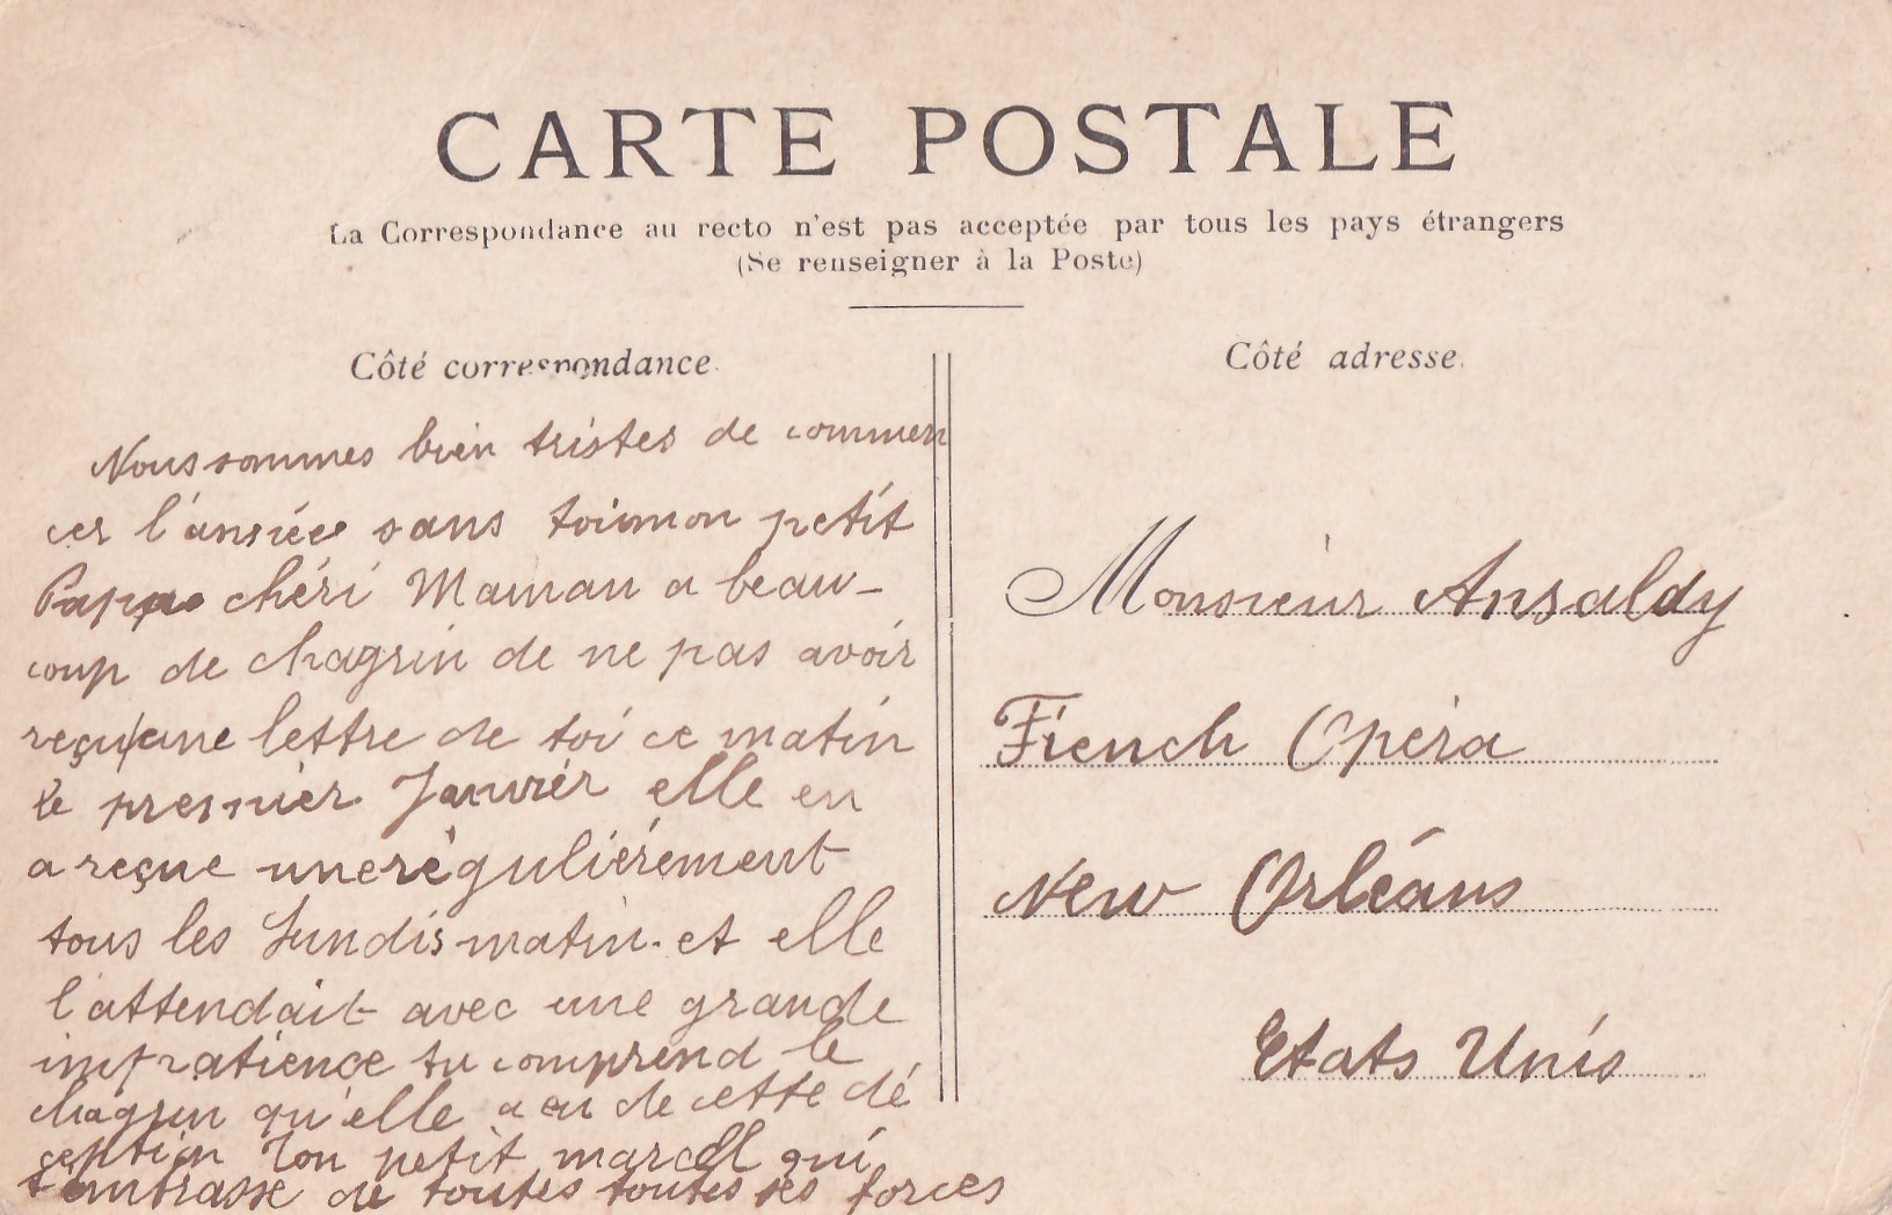 CARTE POSTALE
La Correspondance au recto n'est pas acceptée par tous les pays étrangers
(Se renseigner à la Poste)
Côté correspondance.
Nous sommes bien tristes de commen
cer l'année sans toi mon petit
Papa chéri Maman a beau-
coup de chagrin de ne pas avoir
reçu une lettre de toi ce matin
le premier Janvier elle en
a reçue une régulièrement
tous les Lundis matin. et elle
l'attendait avec une grande
impatience tu comprend le
chagrin qu'elle a eu de cette dé
ception Ton petit marcel qui
t'embrasse de toutes toutes ses forces
Côté adresse.
Monsieur Ansaldy
French Opéra
New Orléans
Etats Unis